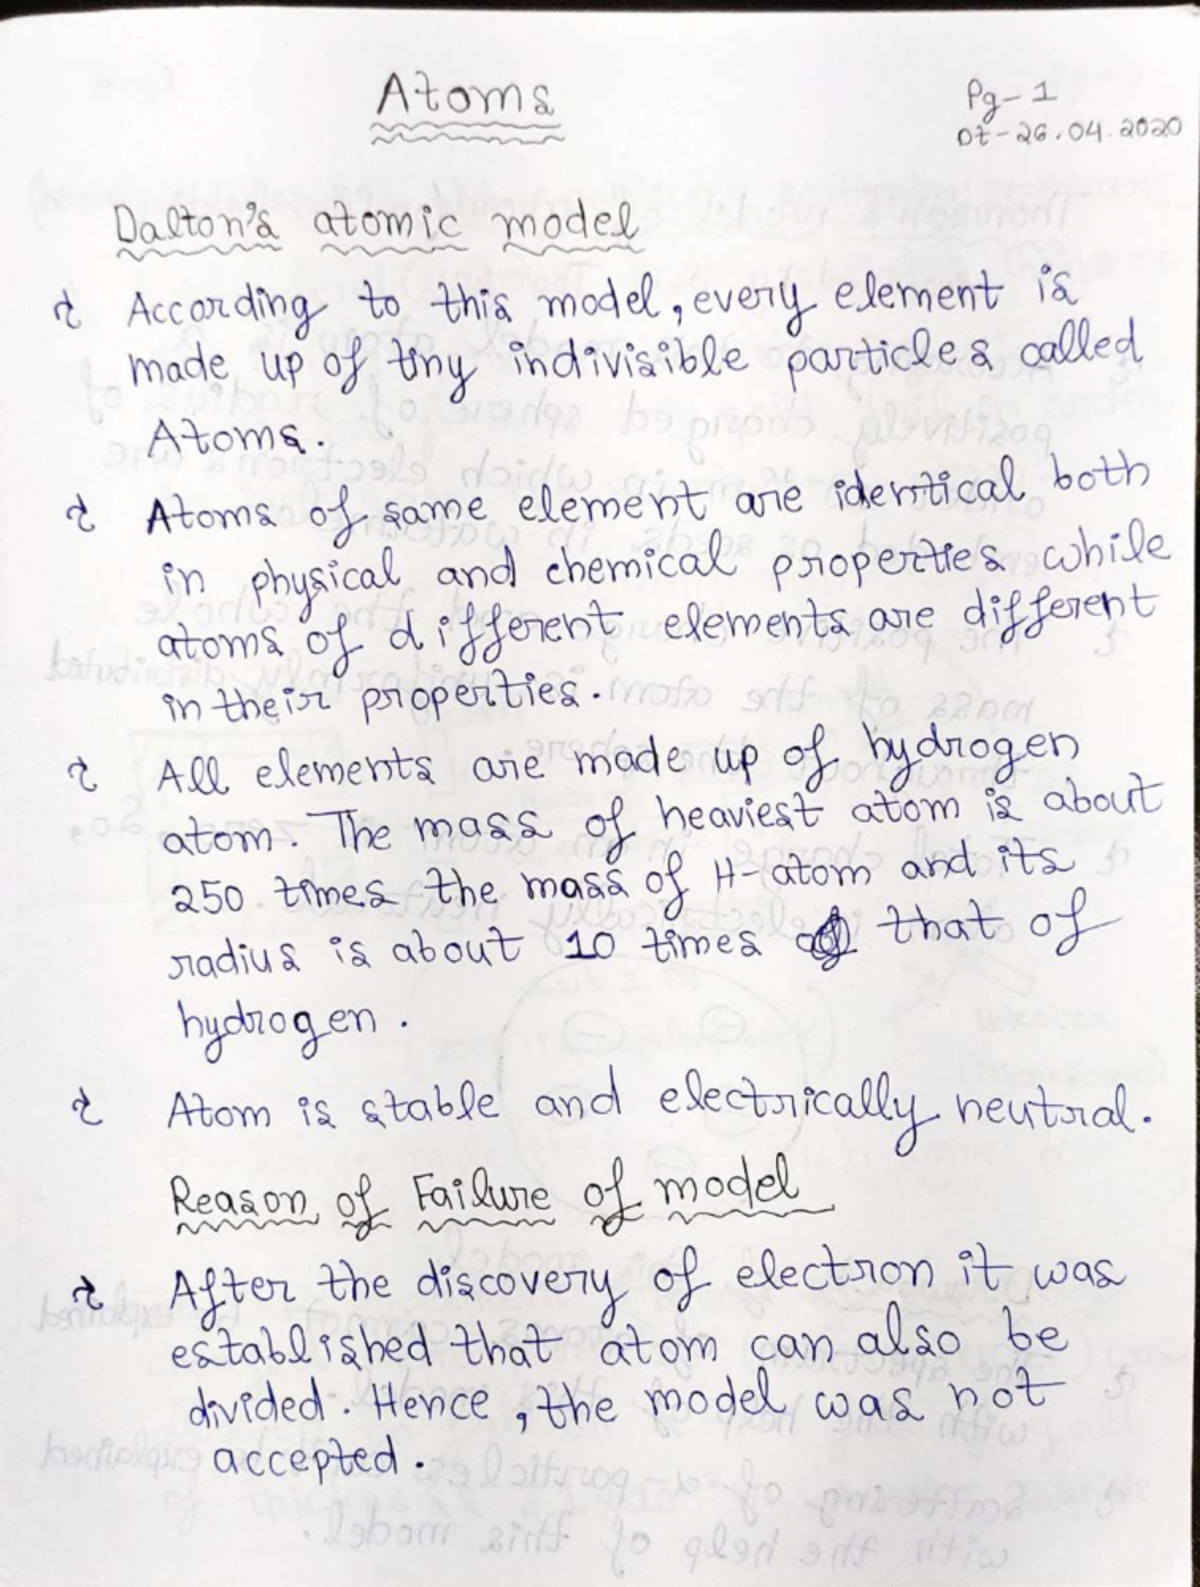 Atoms
Pg-1
Dt-26.04.2020
Dalton's atomic model
According to this model, every element is
made up of tiny indivisible particles called
Atoms.
Atoms of same element are identical both
in physical and chemical properties while
atoms of different elements are different
in their properties.
All elements are made up of hydrogen
atom. The mass of heaviest atom is about
250 times the mass of H-atom and its
radius is about 10 times that of
hydrogen.
Atom is stable and electrically neutral.
Reason of Failure of model
After the discovery of electron it was
established that atom can also be
divided. Hence, the model was not
accepted.